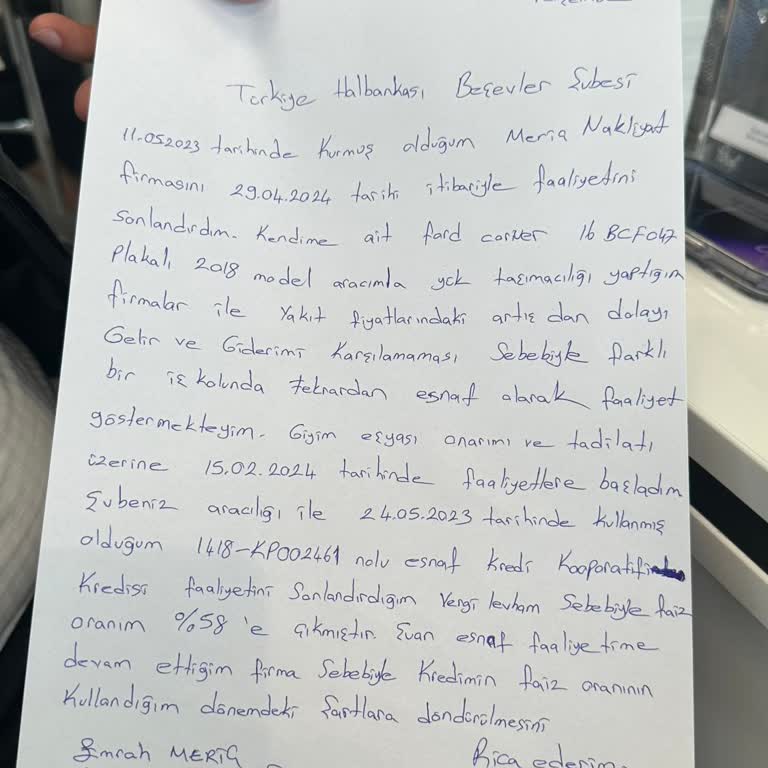 Türkiye Halbankası Beşevler Şubesi
11.052023 tarihinde Kurmuş olduğum Meriç Nakliyat
firmasını 29.04.2024 tarihi itibariyle faaliyetini
Sonlandırdım. Kendime ait ford corıer 16 BCF047
Plakalı 2018 model aracımla yük taşımacılığı yaptığım
firmalar ile Yakıt fiyatlarındaki artış dan dolayı
Gelir ve Giderimi Karşılamaması Sebebiyle farklı
bir iş kolunda tekrardan esnaf olarak faaliyet
göstermekteyim. Giyim eşyası onarımı ve tadilatı
üzerine 15.02.2024 tarihinde faaliyetlere başladım
Şubeniz aracılığı ile 24.05.2023 tarihinde kullanmış
olduğum 1418-KP002461 nolu esnaf kredi Kooparatifi
Kredisi faaliyetini Sonlandırdığım Vergi levham Sebebiyle faiz
oranım %58 'e çıkmıştır. Şuan esnaf faaliyetime
devam ettiğim firma Sebebiyle Kredimin faiz oranının
Kullandığım dönemdeki Şartlara döndürülmesini
Emrah MERİÇ Rica ederim.